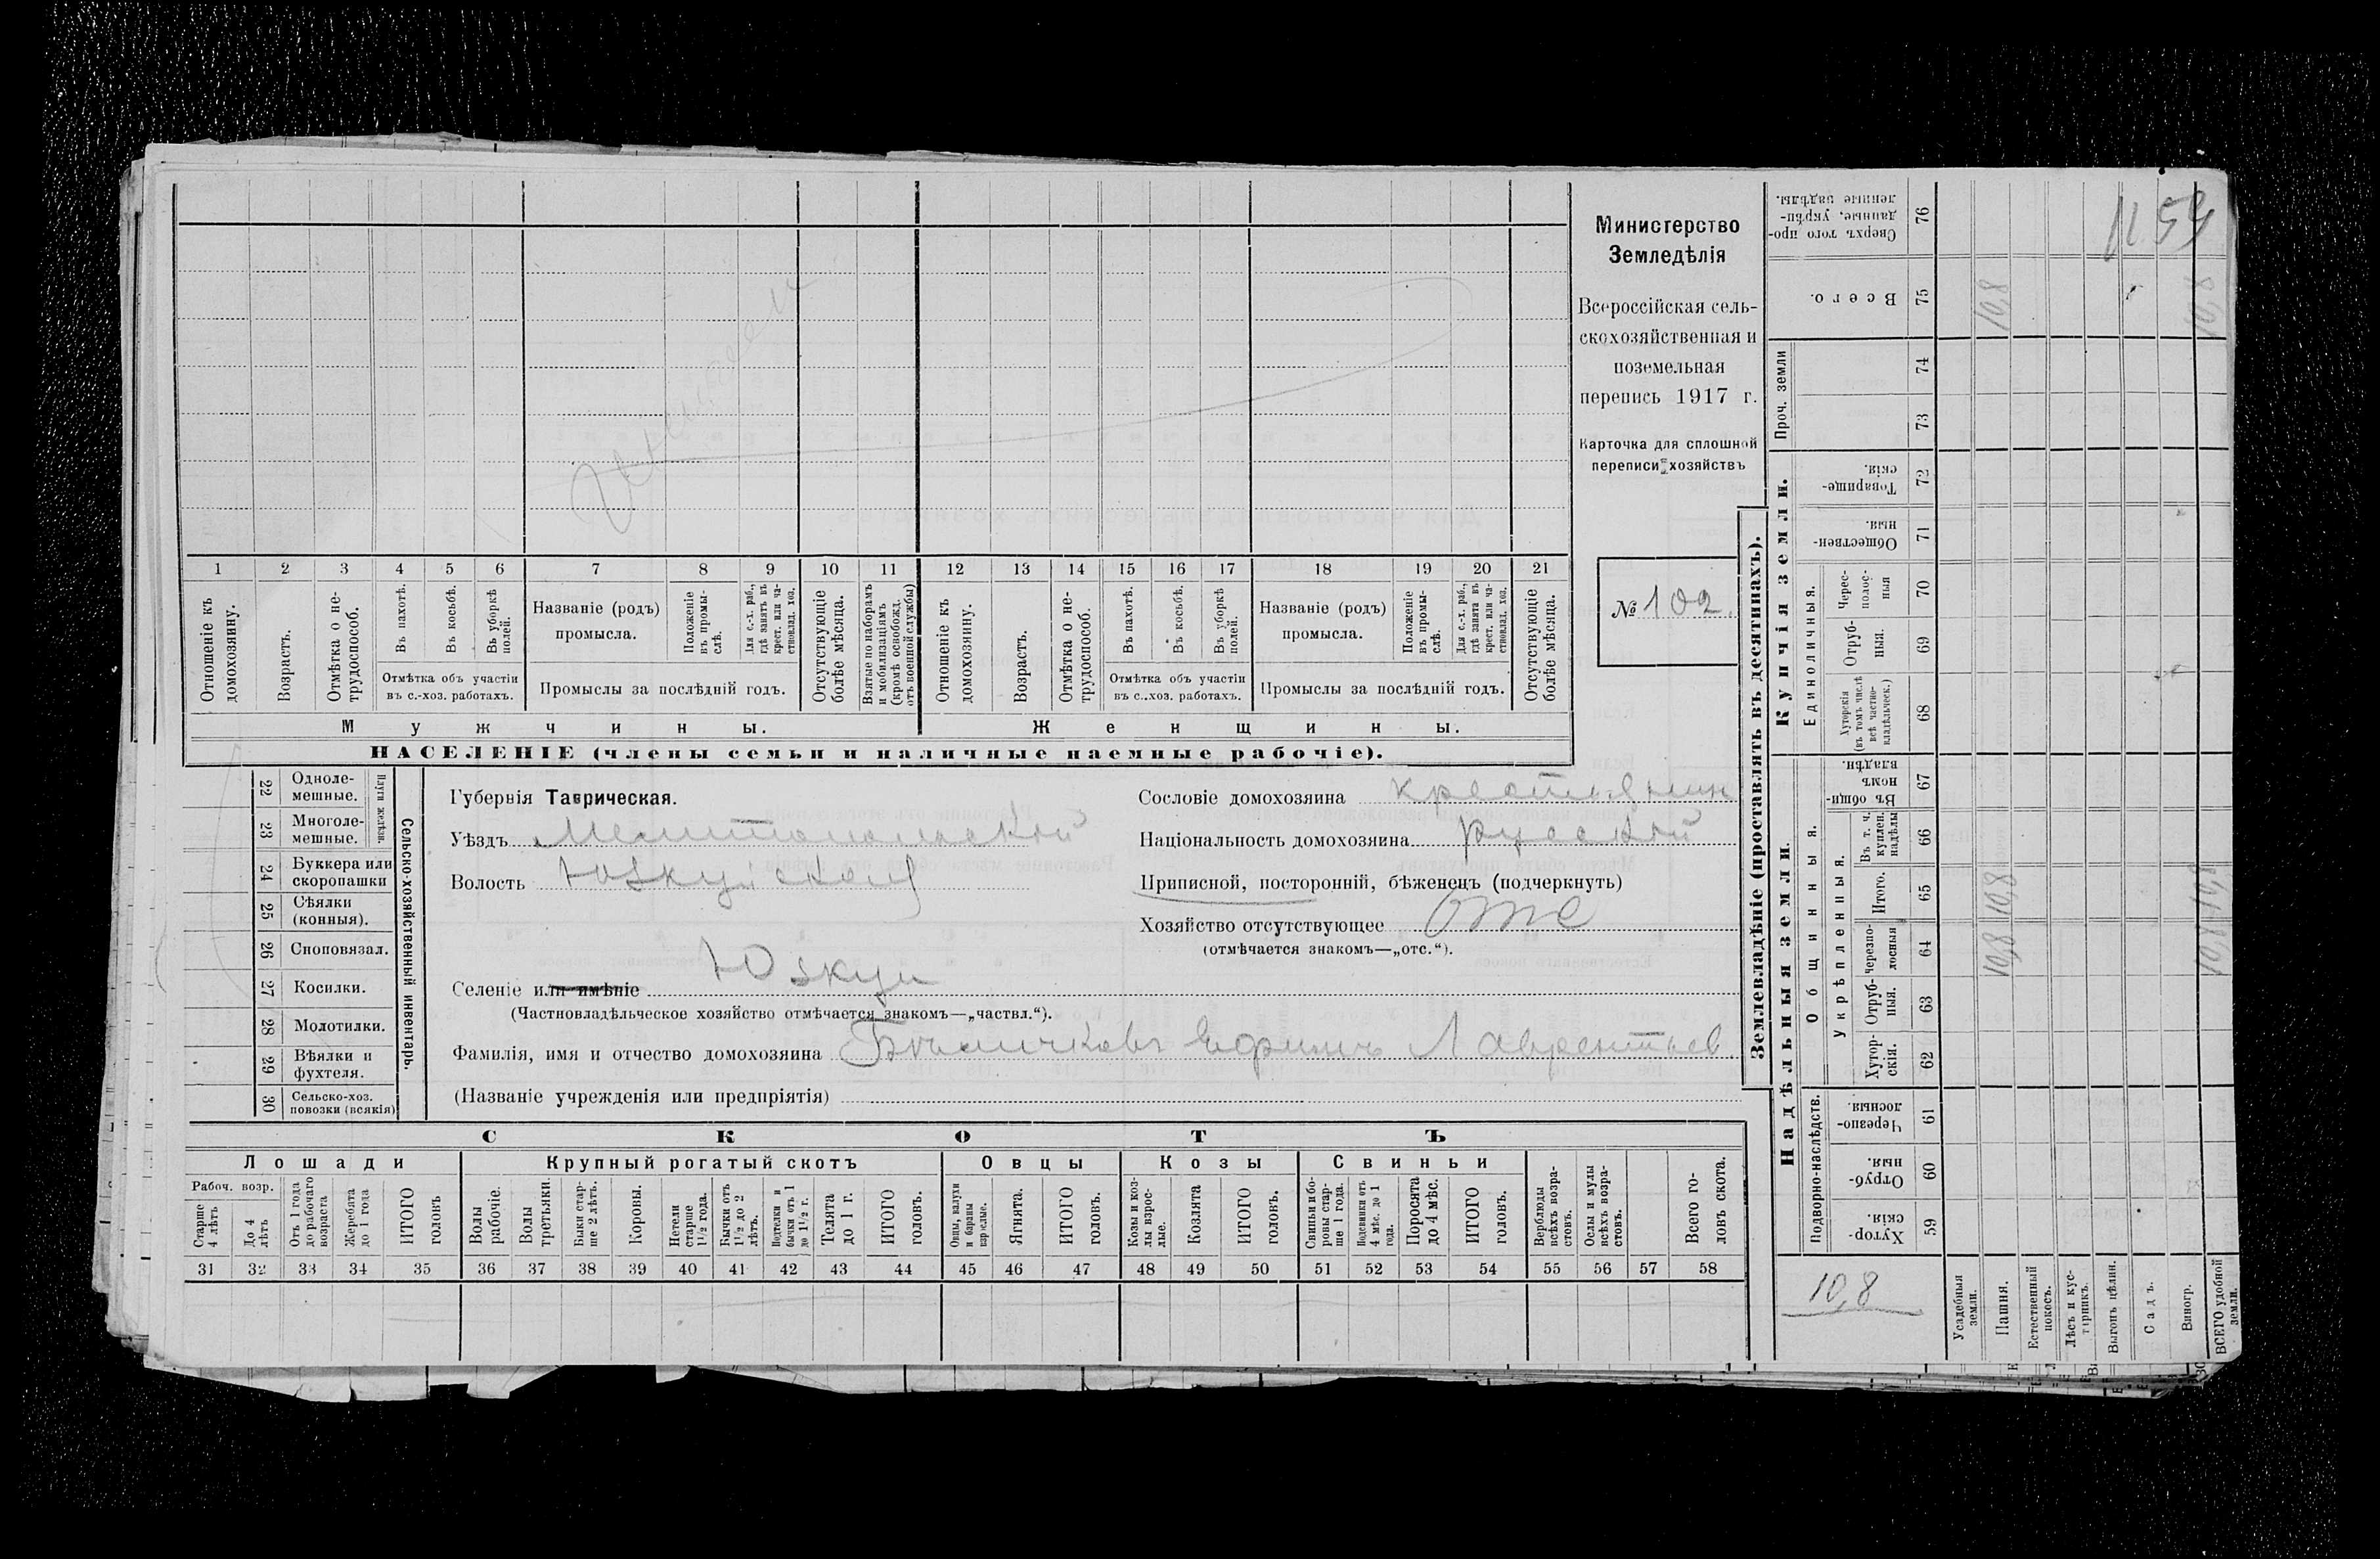 Министерство
Земледѣлія
Всероссійская сель-
скохозяйственная и
поземельная
перепись 1917 г.
Карточка для сплошной
переписи хозяйствъ
№ 102.
1 2 3 4 5 6 7 8 9 10 11 12 13 14 15 16 17 18 19 20 21
Отношеніе къ домохозяину.
Возрастъ.
Отмѣтка о не-трудоспособ.
Въ пахотѣ.
Въ косьбѣ.
Въ уборкѣ полей.
Отмѣтка объ участіи
въ с.-хоз. работахъ.
Названіе (родъ)
промысла.
Положеніе въ промы-слѣ.
Для с.-х. раб., гдѣ занятъ въ крест. или ча-стновлад. хоз.
Промыслы за послѣдній годъ.
Отсутствующіе болѣе мѣсяца.
Взятые по наборамъ и мобилизаціямъ (кромѣ освобожд. отъ военной службы)
Отношеніе къ домохозяину.
Возрастъ.
Отмѣтка о не-трудоспособ.
Въ пахотѣ.
Въ косьбѣ.
Въ уборкѣ полей.
Отмѣтка объ участіи
въ с.-хоз. работахъ.
Названіе (родъ)
промысла.
Положеніе въ промы-слѣ.
Для с.-х. раб., гдѣ занята въ крест. или ча-стновлад. хоз.
Промыслы за послѣдній годъ.
Отсутствующіе болѣе мѣсяца.
Мужчины.
Женщины.
НАСЕЛЕНІЕ (члены семьи и наличные наемные рабочіе).
22 Одноле-мешные.
23 Многоле-мешные.
Плуги желѣзн.
24 Буккера или скоропашки
25 Сѣялки (конныя).
26 Сноповязал.
27 Косилки.
28 Молотилки.
29 Вѣялки и фухтеля.
30 Сельско-хоз. повозки (всякія)
Сельско-хозяйственный инвентарь.
Губернія Таврическая.
Уѣздъ Мелитопольскій
Волость Юзкуйской
Селеніе или имѣніе Юзкуи
(Частновладѣльческое хозяйство отмѣчается знакомъ—„частвл.“).
Фамилія, имя и отчество домохозяина Ефимъ Лаврентьев.
(Названіе учрежденія или предпріятія)
Сословіе домохозяина крестьянин
Національность домохозяина русскій
Приписной, посторонній, бѣженецъ (подчеркнуть)
Хозяйство отсутствующее отс
(отмѣчается знакомъ—„отс.“).
СКОТЪ
Лошади
Крупный рогатый скотъ
Овцы
Козы
Свиньи
Рабоч. возр.
Старше 4 лѣтъ
До 4 лѣтъ
Отъ 1 года до рабочаго возраста
Жеребята до 1 года
ИТОГО головъ
Волы рабочіе.
Волы третьяки.
Быки стар-ше 2 лѣтъ.
Коровы.
Нетели старше 1½ года.
Бычки отъ 1½ до 2 лѣтъ.
Подтелки и бычки отъ 1 до 1½ г.
Телята до 1 г.
ИТОГО головъ.
Овцы, валухи и бараны взрослые.
Ягнята.
ИТОГО головъ.
Козы и коз-лы взрос-лые.
Козлята
ИТОГО головъ.
Свиньи и бо-ровы стар-ше 1 года.
Подсвинки отъ 4 мѣс. до 1 года.
Поросята до 4 мѣс.
ИТОГО головъ.
Верблюды всѣхъ возра-стовъ.
Ослы и мулы всѣхъ возра-стовъ.
Всего го-ловъ скота.
31 32 33 34 35 36 37 38 39 40 41 42 43 44 45 46 47 48 49 50 51 52 53 54 55 56 57 58
Землевладѣніе (проставлять въ десятинахъ).
Купчія земли.
Надѣльныя земли.
Сверхъ того про-данные, укрѣп-ленные надѣлы. 76
Всего. 75
Проч. земли 74 73
Товарище-скія. 72
Обществен-ныя. 71
Единоличныя.
Черес-полос-ныя 70
Отруб-ныя. 69
Хуторскія (въ томъ числѣ всѣ частно-владѣльческ.) 68
Общинныя.
Въ общи-номъ владѣн. 67
Укрѣпленныя.
Въ т. ч. куплен. надѣлы 66
Итого. 65
Черезпо-лосныя 64
Отруб-ныя. 63
Хутор-скія. 62
Подворно-наслѣдств.
Черезпо-лосныя. 61
Отруб-ныя. 60
Хутор-скія. 59
10,8
Усадебныя земли.
Пашня. 10,8 10,8 10,8
Естественный покосъ.
Лѣсъ и кус-тарникъ.
Выгонъ цѣлин.
Садъ.
Виногр.
ВСЕГО удобной земли. 10,8 10,8 10,8